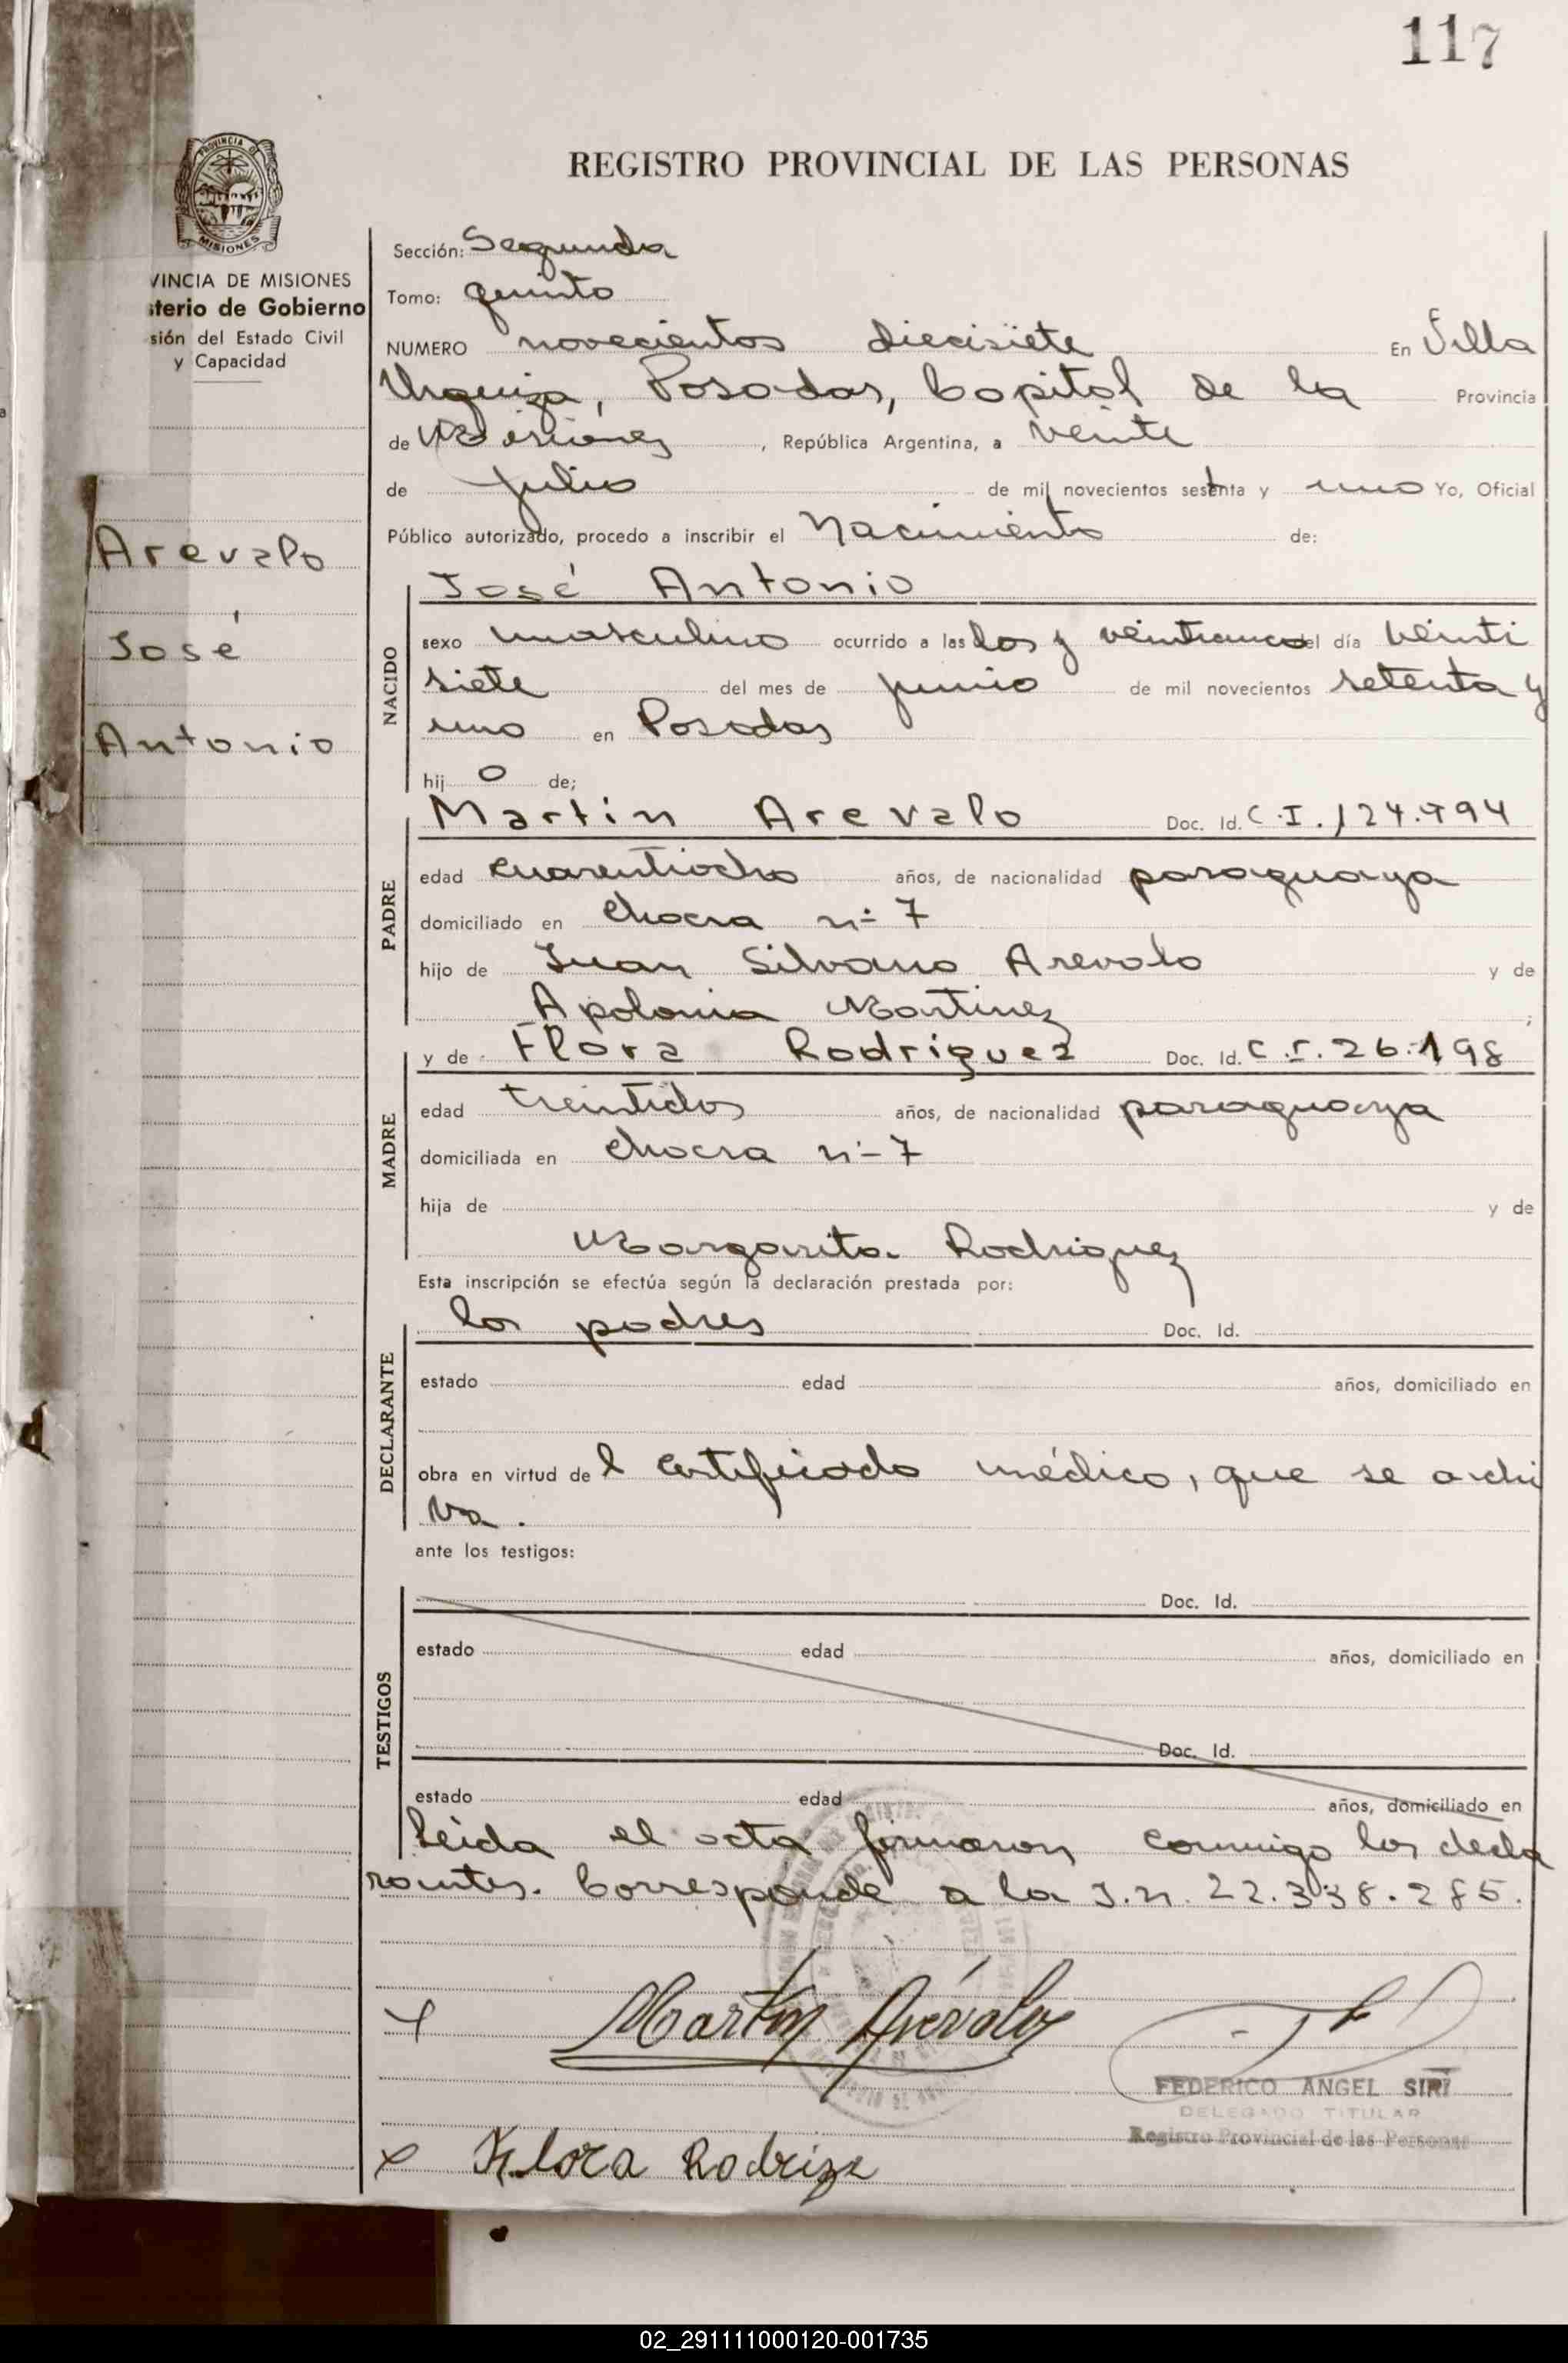 117
PROVINCIA DE
MISIONES
VINCIA DE MISIONES
sterio de Gobierno
sión del Estado Civil
y Capacidad
Arevalo
José
Antonio
REGISTRO PROVINCIAL DE LAS PERSONAS
Sección: Segunda
Tomo: quinto
NUMERO novecientos diecisiete En Villa
Urquiza, Posadas, Capital de la Provincia
de Misiones, República Argentina, a veinte
de julio de mil novecientos setenta y uno Yo, Oficial
Público autorizado, procedo a inscribir el Nacimiento de:
José Antonio
NACIDO
sexo masculino ocurrido a las dos y veinticinco del día veinti
siete del mes de junio de mil novecientos setenta y
uno en Posadas
hij o de;
PADRE
Martin Arevalo Doc. Id. C.I. 124.994
edad cuarentiocho años, de nacionalidad paraguaya
domiciliado en chacra n:- 7
hijo de Juan Silvano Arevalo y de
Apolonia Martinez ;
MADRE
y de Flora Rodriguez Doc. Id. C.I. 26.198
edad treintidos años, de nacionalidad paraguaya
domiciliada en chacra n:- 7
hija de y de
Margarita Rodriguez
Esta inscripción se efectúa según la declaración prestada por:
DECLARANTE
los padres Doc. Id.
estado edad años, domiciliado en
obra en virtud de l certificado médico, que se archi
va.
ante los testigos:
TESTIGOS
Doc. Id.
estado edad años, domiciliado en
Doc. Id.
estado edad años, domiciliado en
Leida el acta firmaron conmigo los decla
rantes. Corresponde a la I.n. 22.338.285.
Martin Arévalo
FEDERICO ANGEL SIRI
DELEGADO TITULAR
Registro Provincial de las Personas
Flora Rodrige
02_291111000120-001735